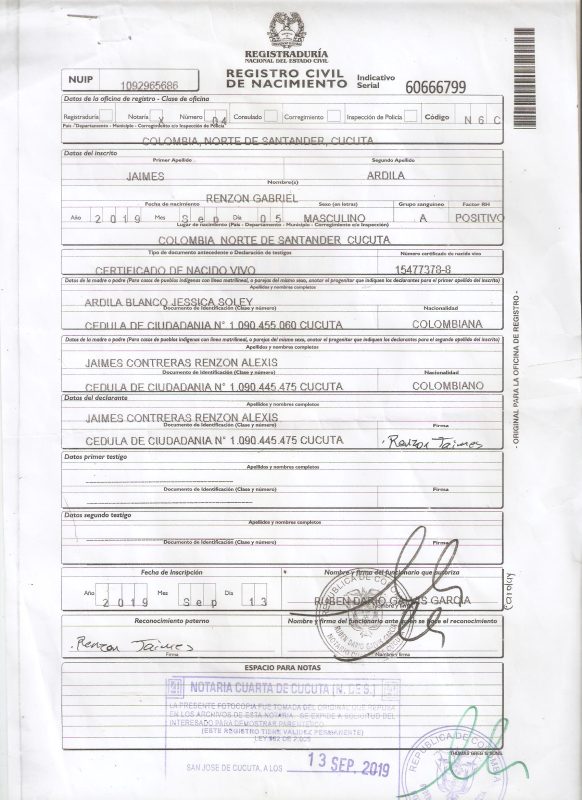 REGISTRADURÍA
NACIONAL DEL ESTADO CIVIL
NUIP 1092965686
REGISTRO CIVIL
DE NACIMIENTO
Indicativo
Serial 60666799
Datos de la oficina de registro - Clase de oficina
Registraduría Notaría X Número 04 Consulado Corregimiento Inspección de Policía Código N 6 C
País - Departamento - Municipio - Corregimiento e/o Inspección de Policía
COLOMBIA, NORTE DE SANTANDER, CUCUTA
Datos del inscrito
Primer Apellido Segundo Apellido
JAIMES ARDILA
Nombre(s)
RENZON GABRIEL
Fecha de nacimiento Sexo (en letras) Grupo sanguíneo Factor RH
Año 2 0 1 9 Mes Sep Día 05 MASCULINO A POSITIVO
Lugar de nacimiento (País - Departamento - Municipio - Corregimiento e/o Inspección)
COLOMBIA NORTE DE SANTANDER CUCUTA
Tipo de documento antecedente o Declaración de testigos Número certificado de nacido vivo
CERTIFICADO DE NACIDO VIVO 15477378-8
Datos de la madre o padre (Para casos de pueblos indígenas con línea matrilineal, o parejas del mismo sexo, anotar el progenitor que indiquen los declarantes para el primer apellido del inscrito)
Apellidos y nombres completos
ARDILA BLANCO JESSICA SOLEY
Documento de Identificación (Clase y número) Nacionalidad
CEDULA DE CIUDADANIA N° 1.090.455.060 CUCUTA COLOMBIANA
Datos de la madre o padre (Para casos de pueblos indígenas con línea matrilineal, o parejas del mismo sexo, anotar el progenitor que indiquen los declarantes para el segundo apellido del inscrito)
Apellidos y nombres completos
JAIMES CONTRERAS RENZON ALEXIS
Documento de Identificación (Clase y número) Nacionalidad
CEDULA DE CIUDADANIA N° 1.090.445.475 CUCUTA COLOMBIANO
Datos del declarante
Apellidos y nombres completos
JAIMES CONTRERAS RENZON ALEXIS
Documento de Identificación (Clase y número) Firma
CEDULA DE CIUDADANIA N° 1.090.445.475 CUCUTA Renzon Jaimes
Datos primer testigo
Apellidos y nombres completos
Documento de Identificación (Clase y número) Firma
Datos segundo testigo
Apellidos y nombres completos
Documento de Identificación (Clase y número) Firma
Fecha de Inscripción Nombre y firma del funcionario que autoriza
Año 2 0 1 9 Mes Sep Día 13
RUBEN DARIO GARCIA
Nombre y firma
REPUBLICA DE COLOMBIA
Reconocimiento paterno Nombre y firma del funcionario ante quien se hace el reconocimiento
Renzon Jaimes
Firma Nombre y firma
ESPACIO PARA NOTAS
NOTARIA CUARTA DE CUCUTA (N. DE S.)
LA PRESENTE FOTOCOPIA FUE TOMADA DEL ORIGINAL QUE REPOSA
EN LOS ARCHIVOS DE ESTA NOTARIA. SE EXPIDE A SOLICITUD DEL
INTERESADO PARA DEMOSTRAR PARENTESCO
(ESTE REGISTRO TIENE VALIDEZ PERMANENTE)
SAN JOSE DE CUCUTA, A LOS 13 SEP. 2019
REPUBLICA DE COLOMBIA
- ORIGINAL PARA LA OFICINA DE REGISTRO -